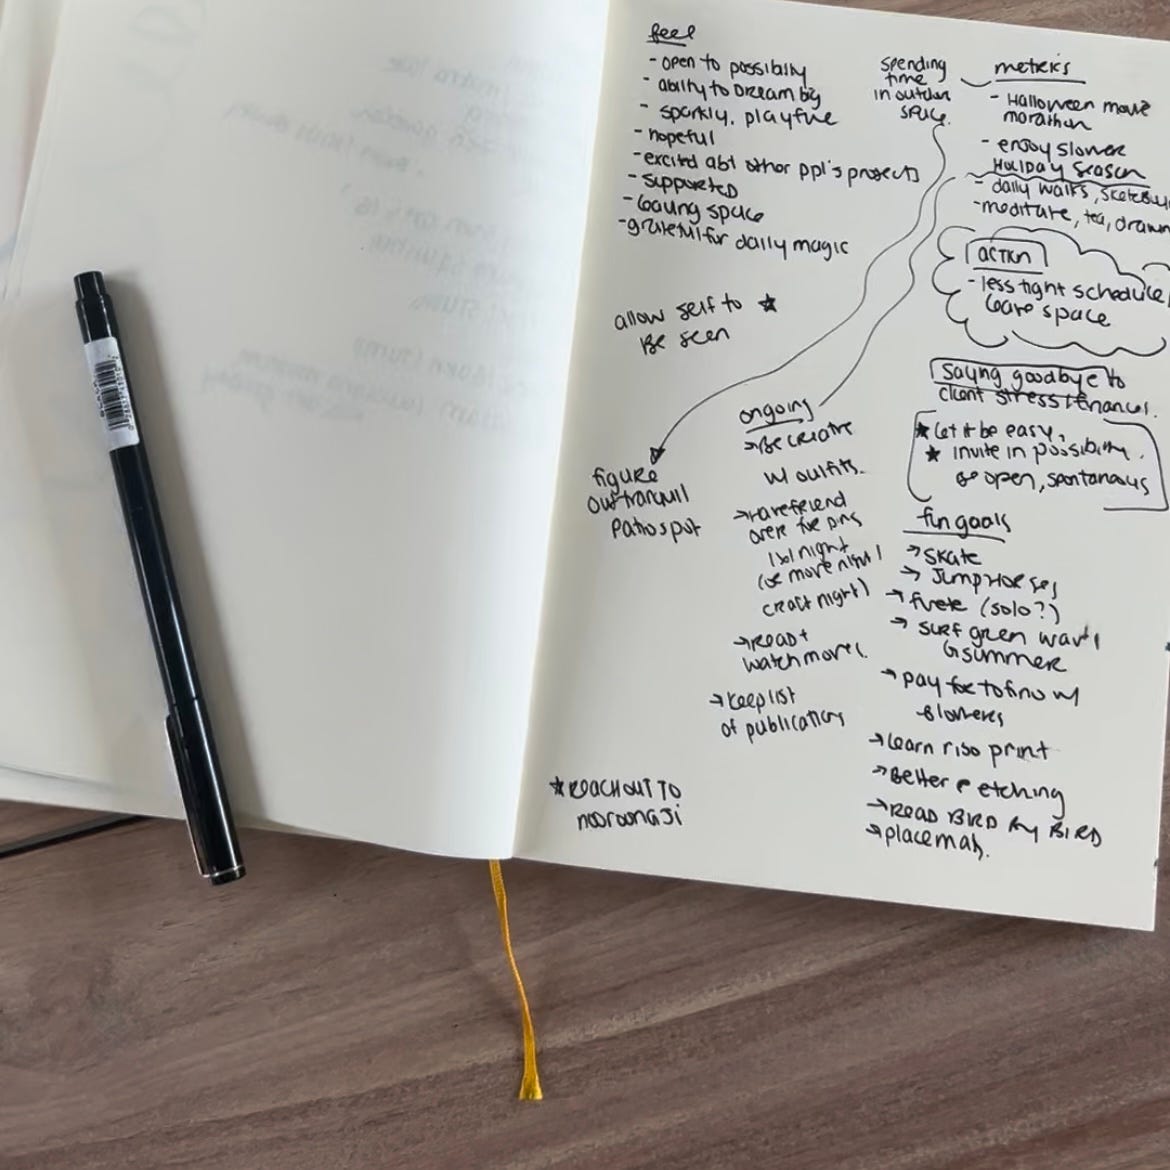 feel
- open to possibility
- ability to DREAM big
- sparkly, playful
- hopeful
- excited abt other ppl's projects
- supported
- leaving space
- grateful for daily magic
spending
time
in outdoor
space.
metrics
- Halloween movie
marathon
- enjoy slower
HOLIDAY season
- daily walks,
- meditate, tea,
action
- less tight schedule
leave space
allow self to ★
Be seen
saying goodbye to
client stress
★ let it be easy,
★ invite in possibility.
Be open, spontaneous
ongoing
→ Be creative
w/ outfits.
night
craft night)
→ Read +
watch movies.
→ keep list
of publications
figure
out tranquil
patio spot
fun goals
→ skate
→ Jump Horses
→ (solo?)
→ surf green
summer
→ pay
flowers
→ learn riso print
→ Better @ etching
→ READ BIRD By BIRD
→ placemats.
★ REACH OUT TO
nooroongji